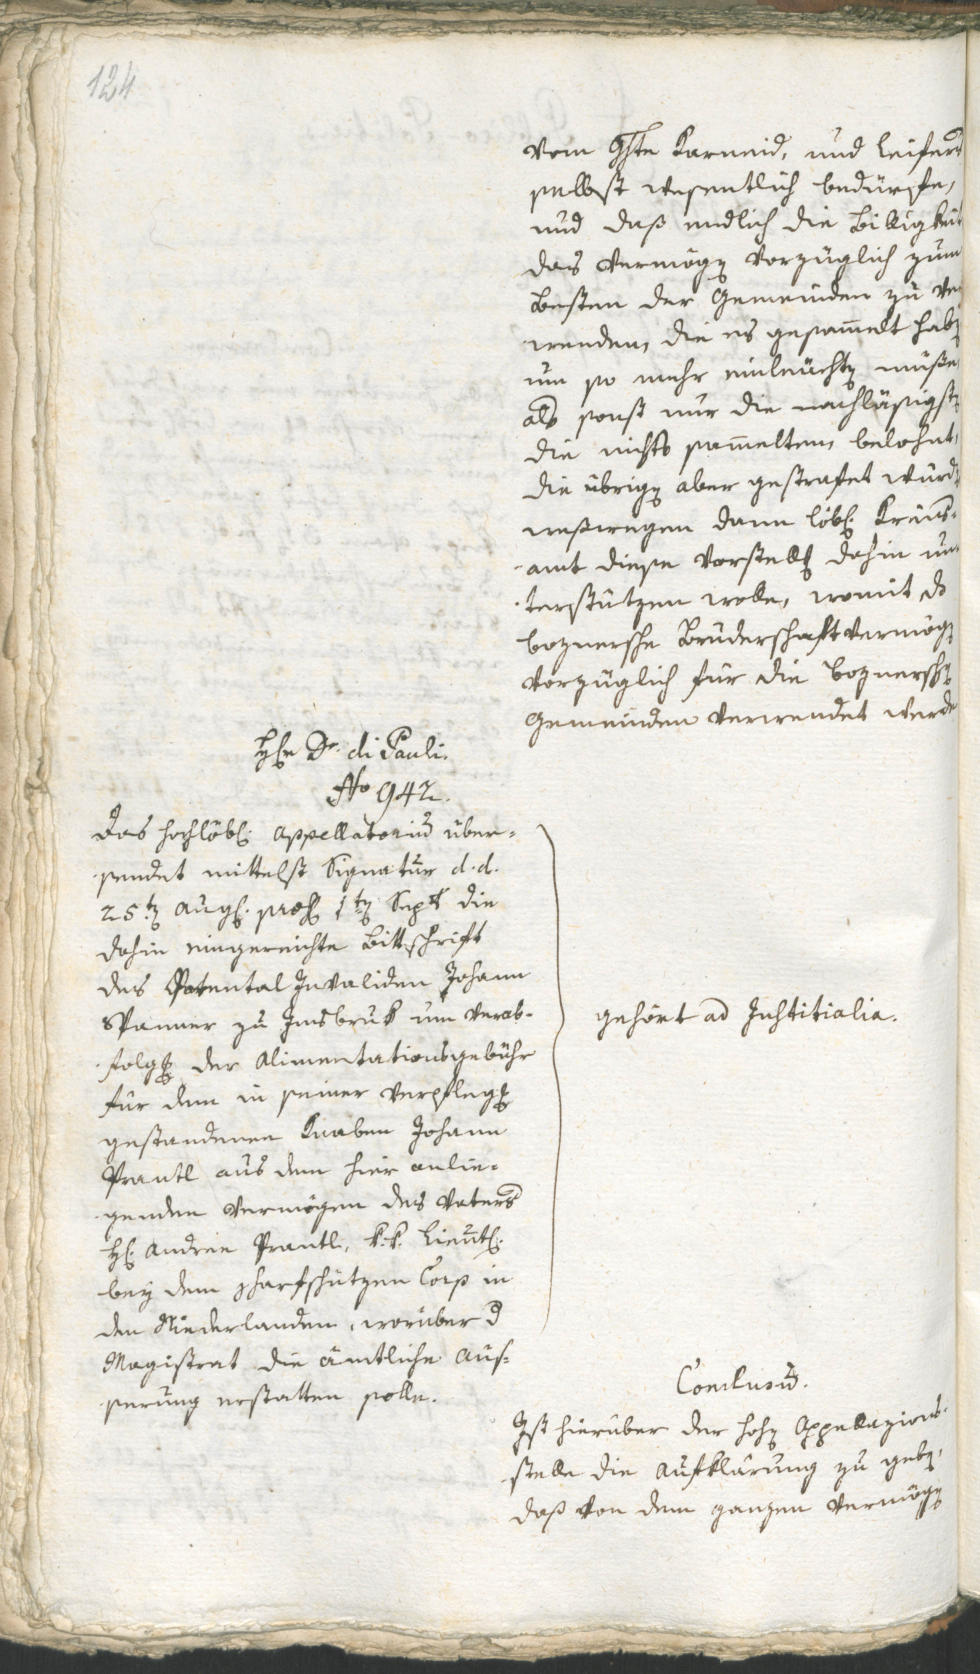 124
vom Gste Karneid, und Leifers
selbst wesentlich bedürfe,
und daß endlich die Billigkeit
das Vermögen vorzüglich zum
Besten der Gemeinden zu ver
wenden, die es gesam̅elt haben
um so mehr einleuchten müße,
als sonst nur die nachläßigsten
die nichts sam̅elten, belohnt,
die übrigen aber gestrafet würden
weßwegen dann löbl. Kreis-
amt diese Vorstellg dahin un
terstützen wolle, womit das
boznersche Bruderschaftvermögen
vorzüglich für die boznerschen
Gemeinden verwendet werde
Hℓr Dr. di Pauli.
No 942.
Das hochlöbl. Appellatorium über-
sendet mittelst Signatur d. d.
25ten Augℓ. præs 1ten Sept die
dahin eingereichte Bittschrift
des Patental Invaliden Johann
Spanner zu Innsbruk um Verab-
folgg der Alimentationsgebühr
für den in seiner Verpflegg
gestandenen Knaben Johann
Prantl aus dem hier anlie-
genden Vermögen des Vaters
H. Andree Prantl, k. k. Lieutℓ.
bey dem Scharfschützen Corps in
den Niederlanden, worüber d
Magistrat die ämtliche Aus-
serung erstatten solle.
gehört ad Justitialia.
Conclusum.
Ist hierüber der hohen Appellazions-
stelle die Aufklärung zu geben,
daß von dem ganzen Vermögen